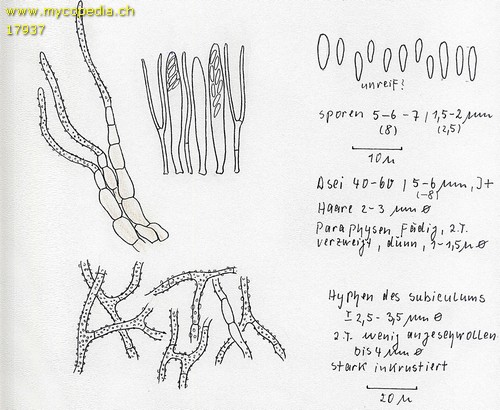 www.mycopedia.ch
17937
unreif?
Sporen 5-6-7 / 1,5-2 µm
(8) (2,5)
10 µ
Asci 40-60 / 5-6 µm, J+
(-8)
Haare 2-3 µm ø
Paraphysen fädig, z.T.
verzweigt, dünn, 1-1,5 µm ø
Hyphen des subiculums
± 2,5-3,5 µm ø
z.T. wenig angeschwollen
bis 4 µm ø
stark inkrustiert
20 µ